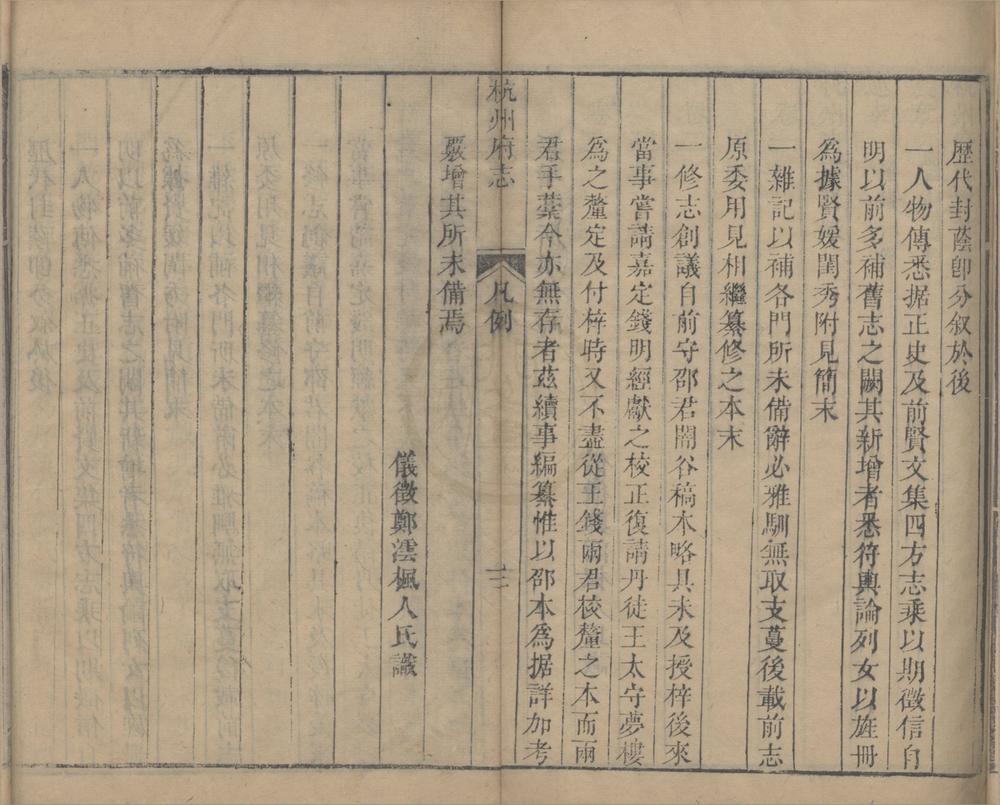 歷代封蔭卽分叙於後
一人物傳悉据正史及前賢文集四方志乘以期徵信自
明以前多補舊志之闕其新增者悉符輿論列女以旌冊
爲據賢媛閨秀附見簡末
一雜記以補各門所未備辭必雅馴無取支蔓後載前志
原委用見相繼纂修之本末
一修志創議自前守邵君闇谷稿本略具未及授梓後來
當事嘗請嘉定錢明經獻之校正復請丹徒王太守夢樓
爲之釐定及付梓時又不盡從王錢兩君校釐之本而兩
君手葉今亦無存者茲續事編纂惟以邵本爲据詳加考
覈增其所未備焉
杭州府志
凡例
儀徵鄭澐楓人氏識